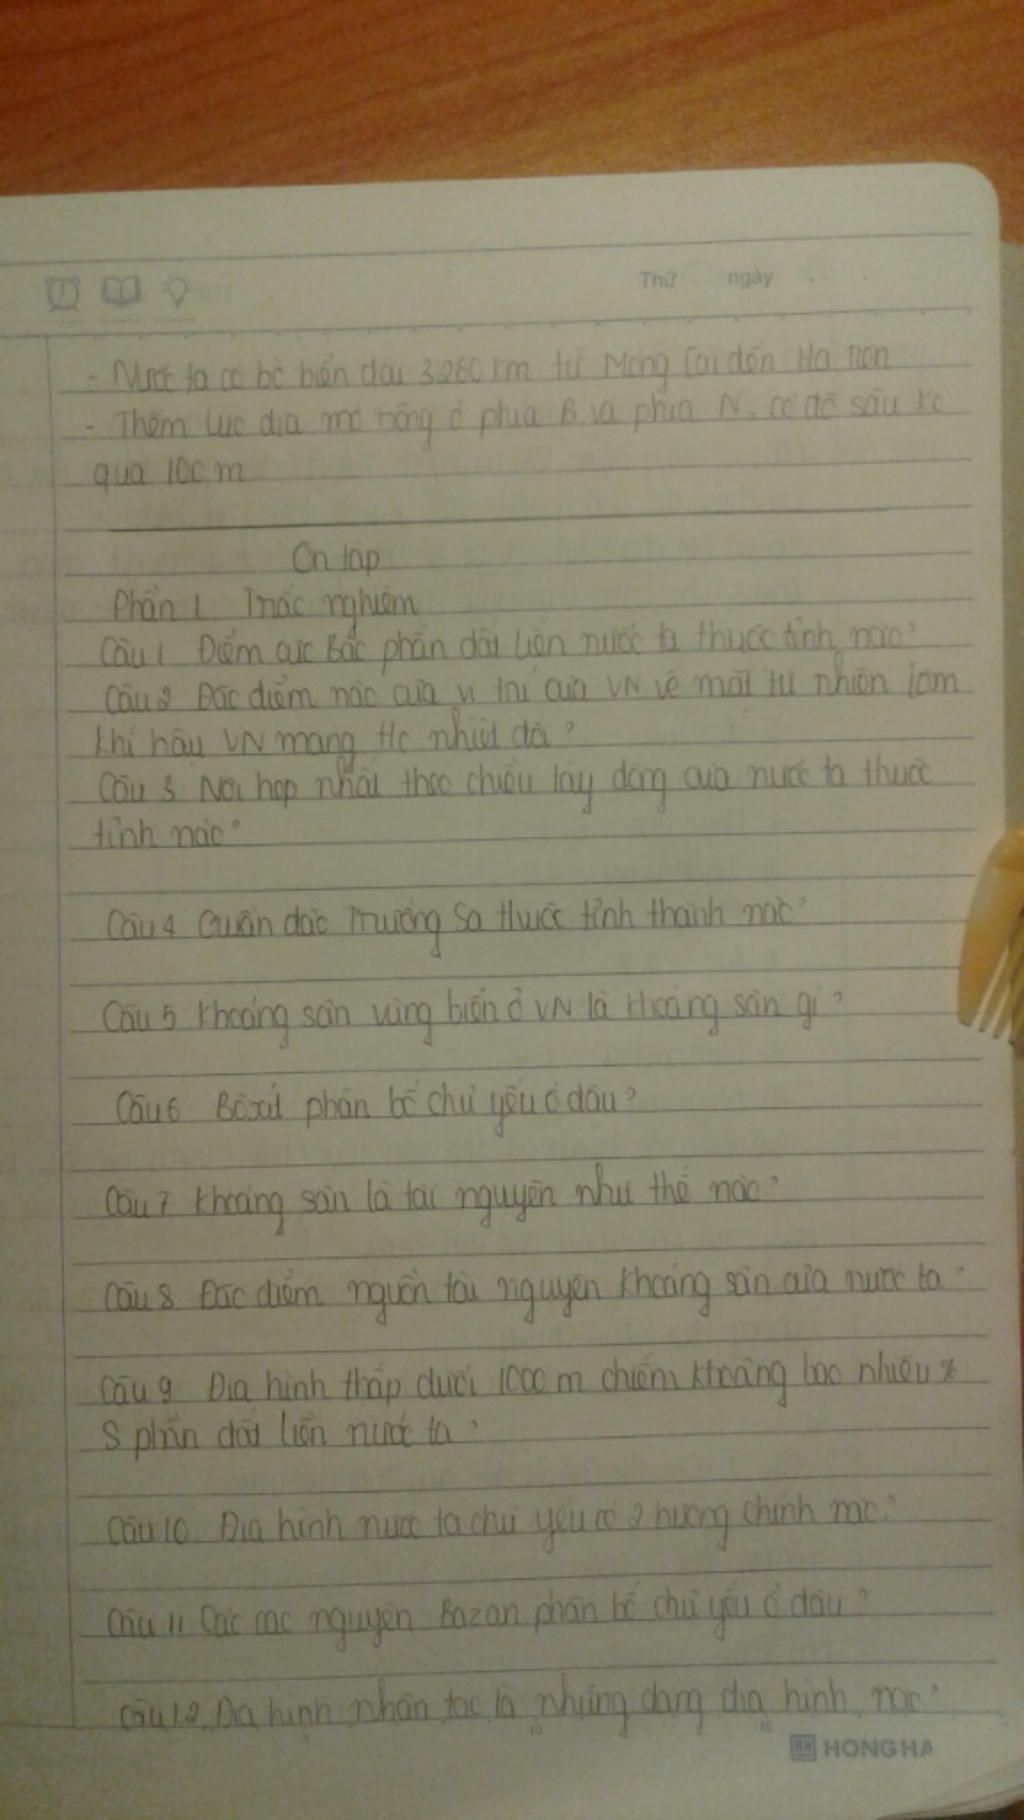 Thứ ngày
- Nước ta có bờ biển dài 3260 km từ Móng Cái đến Hà Tiên
- Thềm lục địa mở rộng ở phía B và phía N, có độ sâu ko
quá 100 m
Ôn tập
Phần 1 Trắc nghiệm
Câu 1 Điểm cực Bắc phần đất liền nước ta thuộc tỉnh nào?
Câu 2 Đặc điểm nào của vị trí của VN về mặt tự nhiên làm
khí hậu VN mang t/c nhiệt đới?
Câu 3 Nơi hẹp nhất theo chiều tây đông của nước ta thuộc
tỉnh nào?
Câu 4 Quần đảo Trường Sa thuộc tỉnh thành nào?
Câu 5 Khoáng sản vùng biển ở VN là khoáng sản gì?
Câu 6 Bôxít phân bố chủ yếu ở đâu?
Câu 7 Khoáng sản là tài nguyên như thế nào?
Câu 8 Đặc điểm nguồn tài nguyên khoáng sản của nước ta
Câu 9 Địa hình thấp dưới 1000 m chiếm khoảng bao nhiêu %
S phần đất liền nước ta?
Câu 10 Địa hình nước ta chủ yếu có 2 hướng chính nào?
Câu 11 Các cao nguyên Bazan phân bố chủ yếu ở đâu?
Câu 12 Địa hình nhân tạo là những dạng địa hình nào?
HONG HA